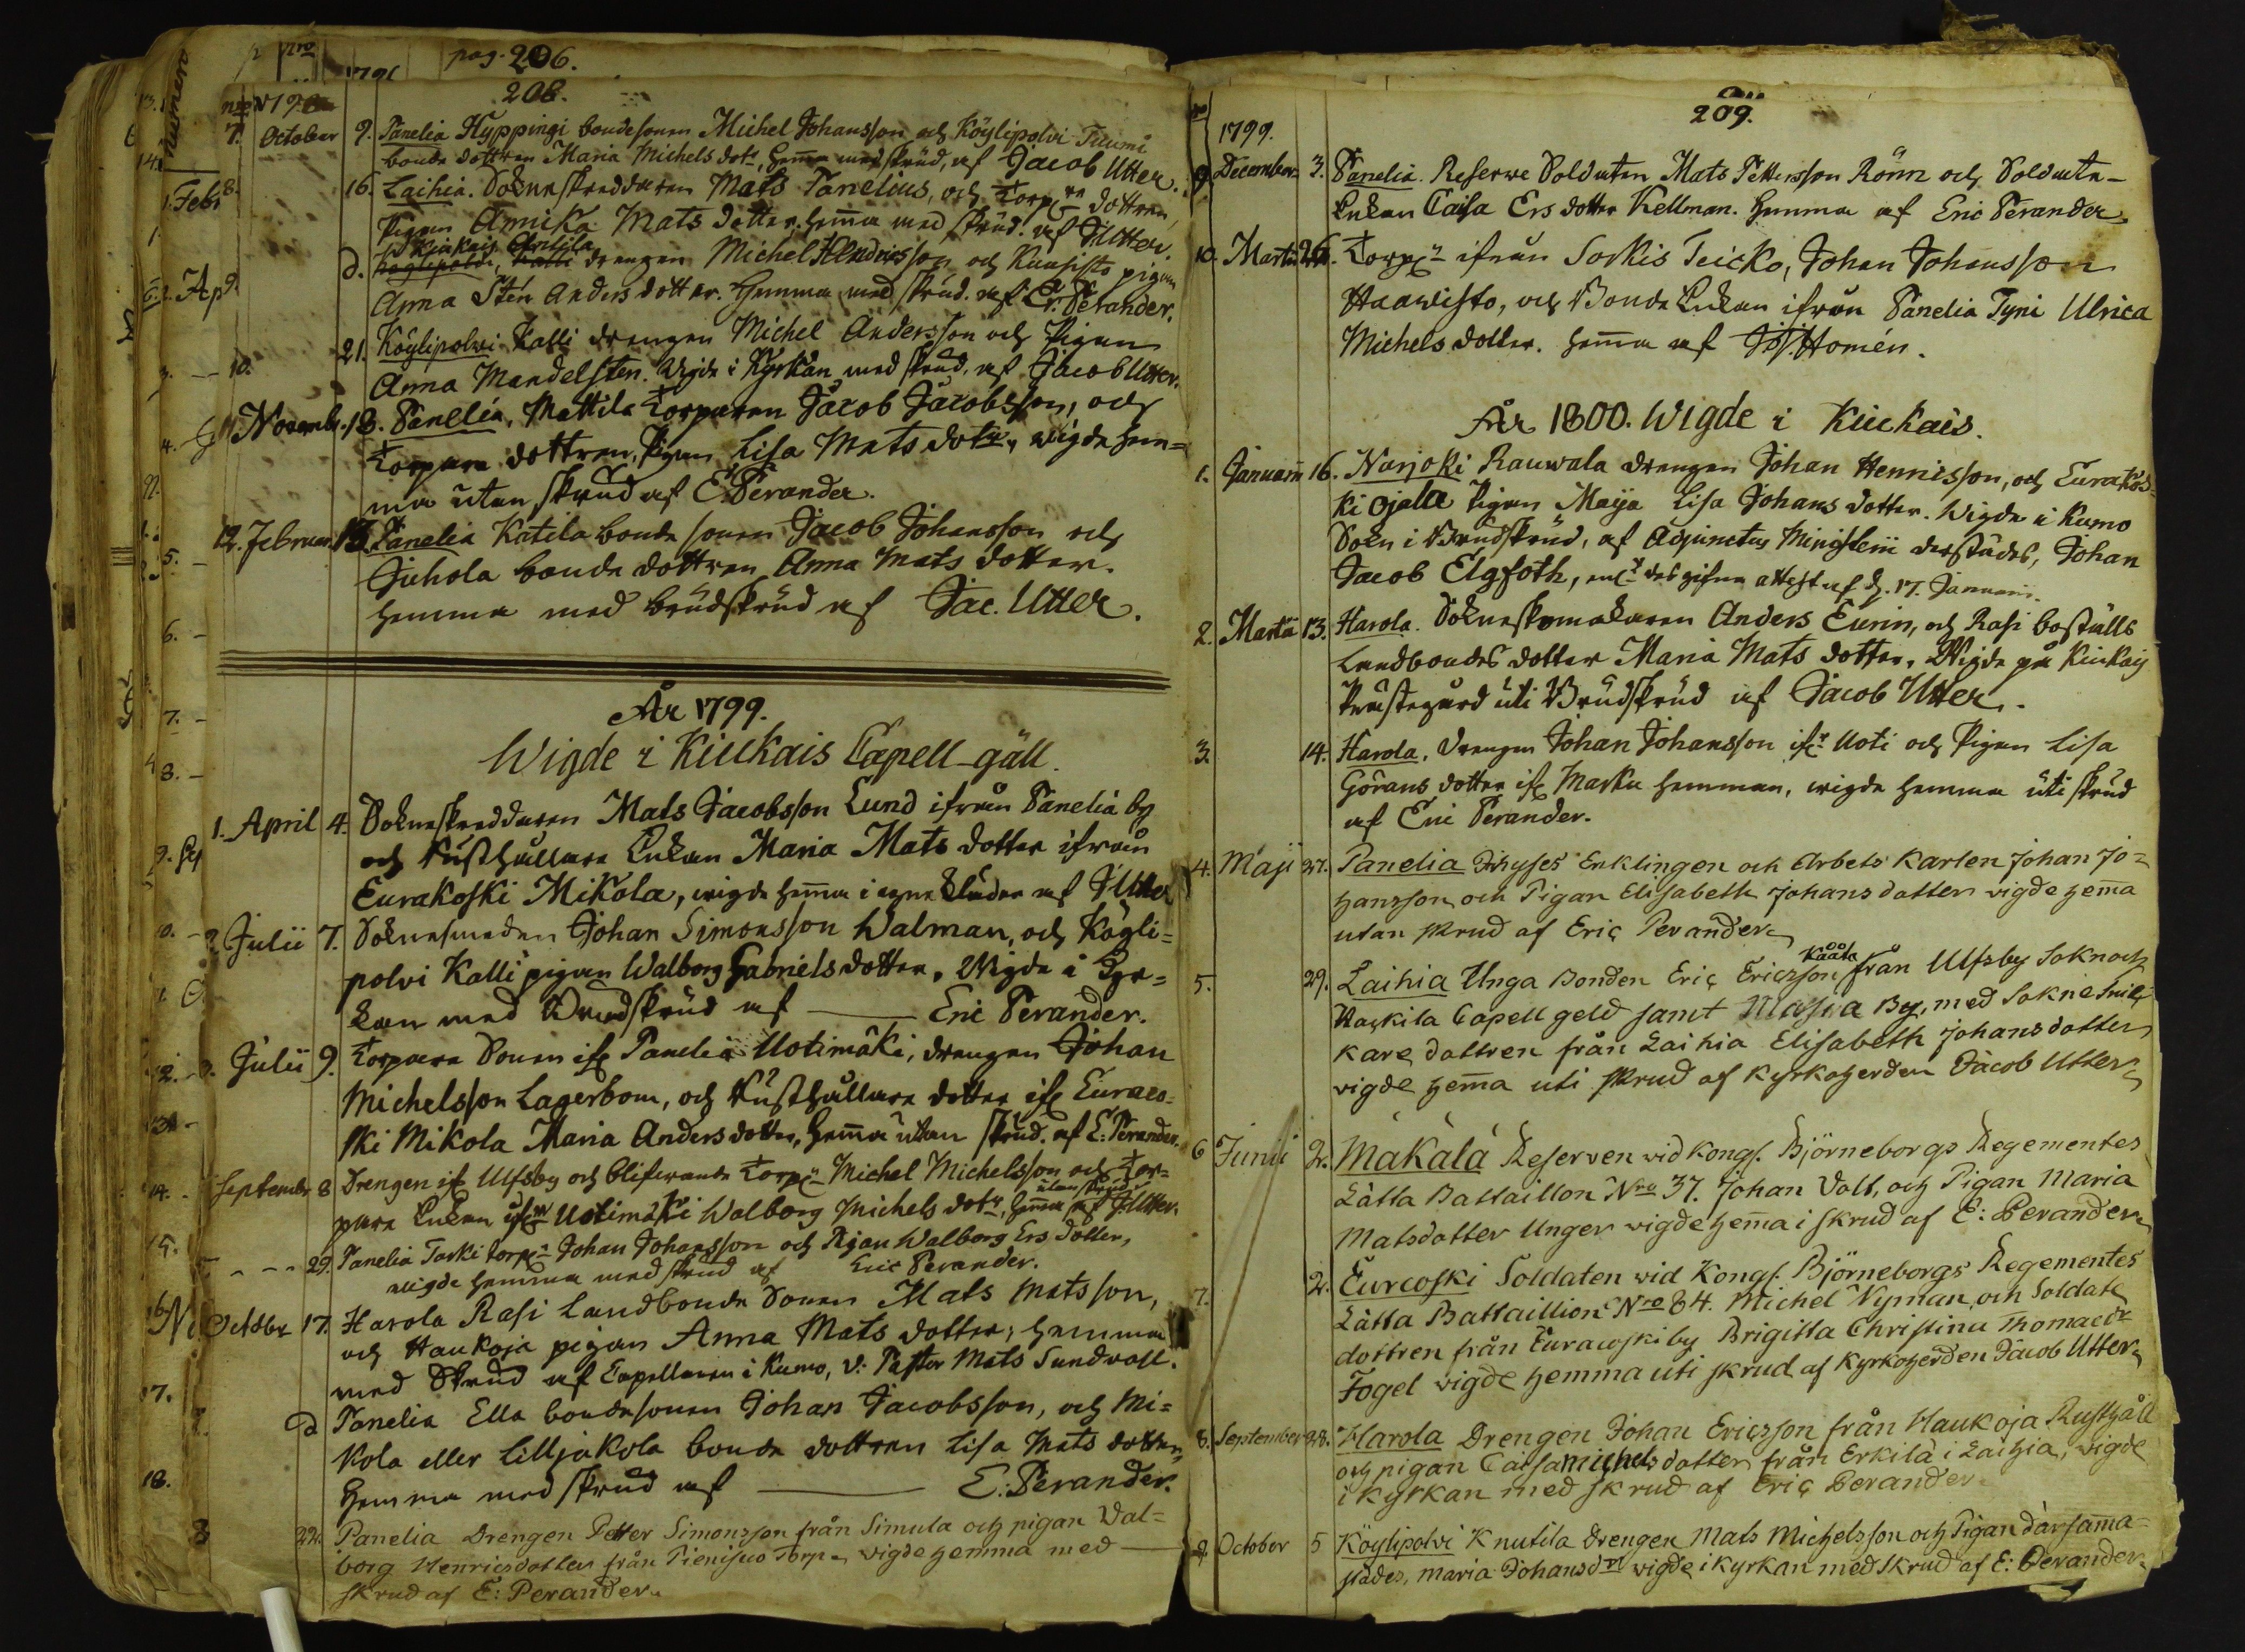 pag. 206.
208.
7. October 9. Panelia Hyppingi bondesonen Michel Johansson och Köylipolvi Tuumi
bonde dottren Maria Michels dotr, hem̄a med skrud, af Jacob Utter.
8. 16. Laihia. Sokneskreddaren Mats Panelius, och Torp. dottren
Pigan Annika Mats dotter, hem̄a med skrud af J Utter.
Kiukais Anttila
9. d. drengen Michel Hendricsson och Kuusisto pigan
Anna Sten Anders dotter. Hemma med skrud. af Er. Perander.
10. 21. Köylipolvi Kalli drengen Michel Andersson och Pigan
Anna Mandelsten. Vigde i Kyrkan med skrud, af Jacob Utter.
11. Novemb. 13. Panelia, Mattila Torparen Jacob Jacobsson, och
Torpare dottren, Pigan Lisa Mats dotr, wigde hem=
ma utan skrud af E. Perander.
12. Februar. 13. Panelia Katila bonde sonen Jacob Johansson och
Juhola bonde dottren Anna Mats dotter.
hemma med brudskrud af Jac. Utter.
År 1799.
Wigde i Kiukais Capell-gäll.
1. April 4. Sokneskreddaren Mats Jacobsson Lund ifrån Panelia by
och Rusthållare Enkan Maria Mats dotter ifrån
Eurakoski Mikola, wigde hem̄a i egne kläder af J Utter
2. Julii 7. Soknesmeden Johan Simonsson Walman, och Köyli=
polvi Kalli pigan Walborg Gabriels dotter. Wigde i Kyr=
kan med Brudskrud af Eric Perander.
3. Julii 9. Torpare Sonen ifr Panelia Uotimäki, drengen Johan
Michelsson Lagerbom, och Rusthållare dotter ifr Euraco=
ski Mikola Maria Anders dotter, hem̄a utan skrud. af E: Perander.
September 8 Drengen ifr Ulfsby och blifwande Torp. Michel Michelsson och Tor=
utan skrud
pare Enkan ifrm Uotimäki Walborg Michels dotr, hem̄a af J: Utter.
29. Panelia Taski torp. Johan Johansson och Pigan Walborg Ers dotter,
wigde hemma med skrud af Eric Perander.
October 17. Harola Rasi Landbonde Sonen Mats Matsson,
och Haukoja pigan Anna Mats dotter, hemma
med Skrud af Capellanen i Kumo, V: Pastor Mats Sundvall.
d Panelia Ella bondesonen Johan Jacobsson, och Mi=
kola eller Lilljakola bonde dottren Lisa Mats dotter,
hemma med skrud af E. Perander.
22. Panelia Drengen Petter Simonsson från Simula och pigan Wal=
borg Henricsdotter från Pienisuo Torp. wigde hemma med
skrud af E: Perander.
209.
1799.
9. December 3. Panelia. Reserwe Soldaten Mats Pettersson Rönn och Soldate-
Enkan Caisa Ers dotter Kellman. hemma af Eric Perander.
10. Martii 26. Torp. ifrån Sorkis Teicko, Johan Johansson
Haawisto, och Bonde Enkan ifrån Panelia Tyni Ulrica
Michels dotter. hem̄a af Jos. Homén.
År 1800. Wigde i Kiukais.
1. Januarii 16. Narjoki Rauwala drengen Johan Henricsson, och Eurakos=
ki Ojala Pigan Maija Lisa Johans dotter. Wigde i Kumo
Sokn i Brudskrud, af Adjunctus Ministerii derstädes, Johan
Jacob Elgfoth, enl. des gifna attest af d. 17. Januarii.
2. Martii 13. Harola. Sokneskomakaren Anders Eurin, och Rasi boställs
Landbondes dotter Maria Mats dotter. Wigde på Kiukais
Prästegård uti Brudskrud af Jacob Utter.
3. 14. Harola, Drengen Johan Johansson ifr Uoti och Pigan Lisa
Görans dotter ifr Marku hemman, wigde hemma uti skrud
af Eric Perander.
4. Maji 27. Panelia Jthyses Enklingen och Arbets Karlen Johan Jo=
hansson och Pigan Elisabeth Johans dotter vigde hem̄a
utan skrud af Eric Perander
Kååla
5. 29. Laihia Unga Bonden Eric Ericsson från Ulfsby Sokn och
Harkila Capell geld samt Masia By, med Sokne Snic=
kare dottren från Laihia Elisabeth Johans dotter
vigde hem̄a uti skrud af Kyrkoherden Jacob Utter
6 Junii 2. Mäkälä Reserven vid Kongs. Björneborgs Regementes
Lätta Battaillon Nro 37. Johan Valt, och Pigan Maria
Matsdotter Unger vigde hem̄a i skrud af E: Perander
7. 2. Eurcoski Soldaten vid Kongs. Björneborgs Regementes
Lätta Battaillion Nro 84. Michel Nyman, och Soldate
dottren från Euracoski by Brigitta Christina Thomaedr
Fogel vigde hemma uti skrud af Kyrkoherden Jacob Utter
8. September 28. Harola Drengen Johan Ericsson från Haukoja Rusthåll
och pigan Caisa Michels dotter från Erkilä i Laihia, vigde
i Kyrkan med skrud af Eric Perander
9. October 5 Köylipolvi Knutila Drengen Mats Michelsson och Pigan därsam̄a=
städes, Maria Johansdr vigde i Kyrkan med skrud af E: Perander